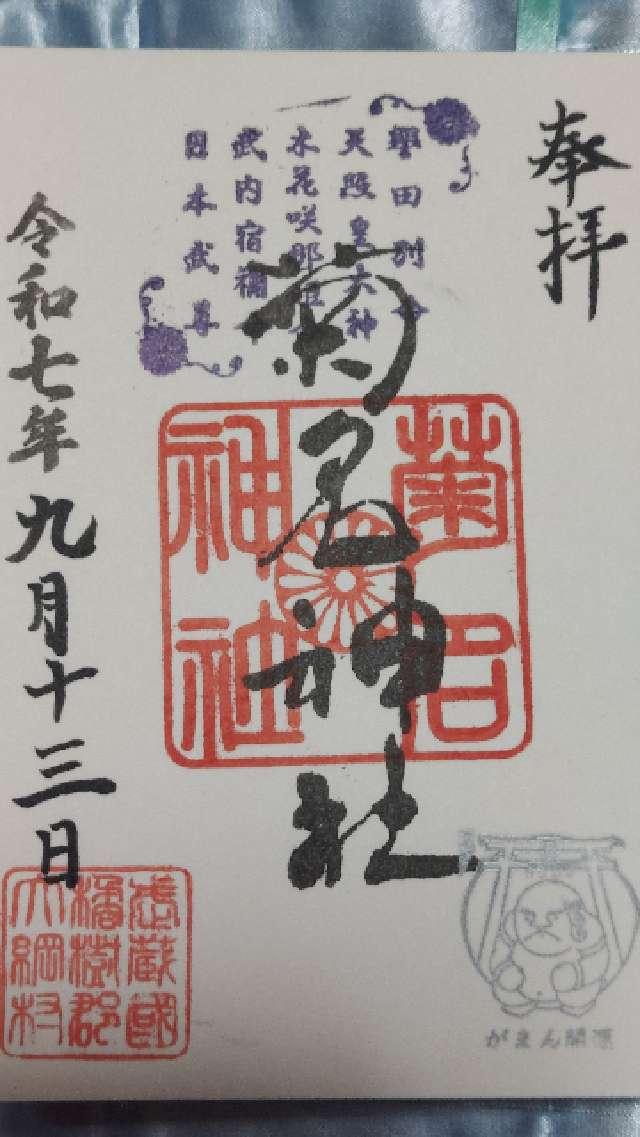 奉拝
譽田別命
天照皇大神
木花咲耶姫命
武内宿禰
日本武尊
菊名神社
菊名
神社
令和七年九月十三日
武蔵國
橘樹郡
大綱村
がまん開運